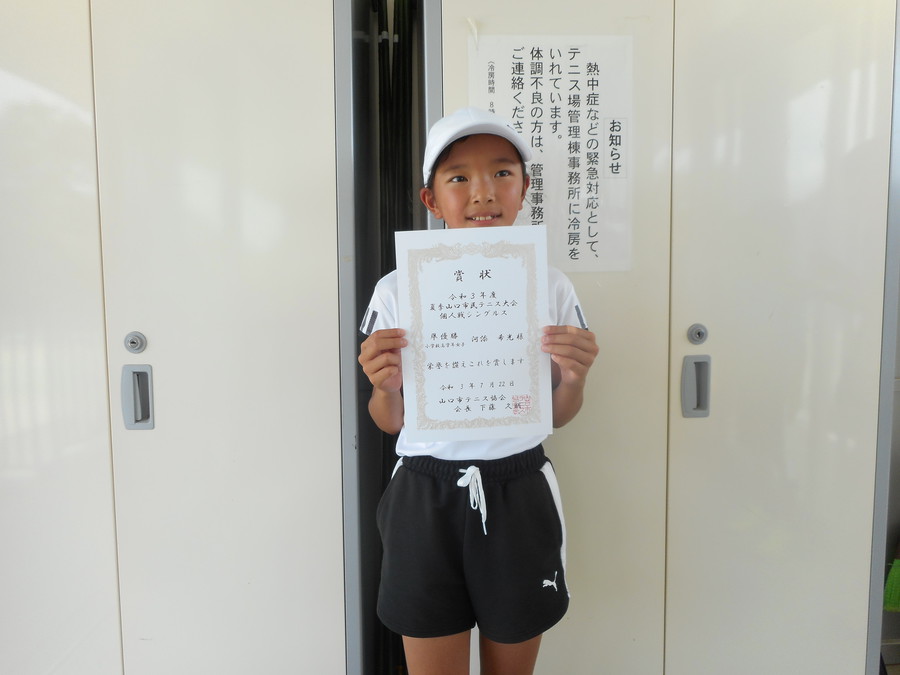 お知らせ
熱中症などの緊急対応として、
テニス場管理棟事務所に冷房を
いれています。
体調不良の方は、管理事務所
ご連絡くださ
(冷房時間 8
賞状
令和3年度
夏季山口市民テニス大会
個人戦シングルス
準優勝 河添 希光様
栄誉を讃えこれを賞します
令和3年7月22日
山口市テニス協会
会長 下藤 久